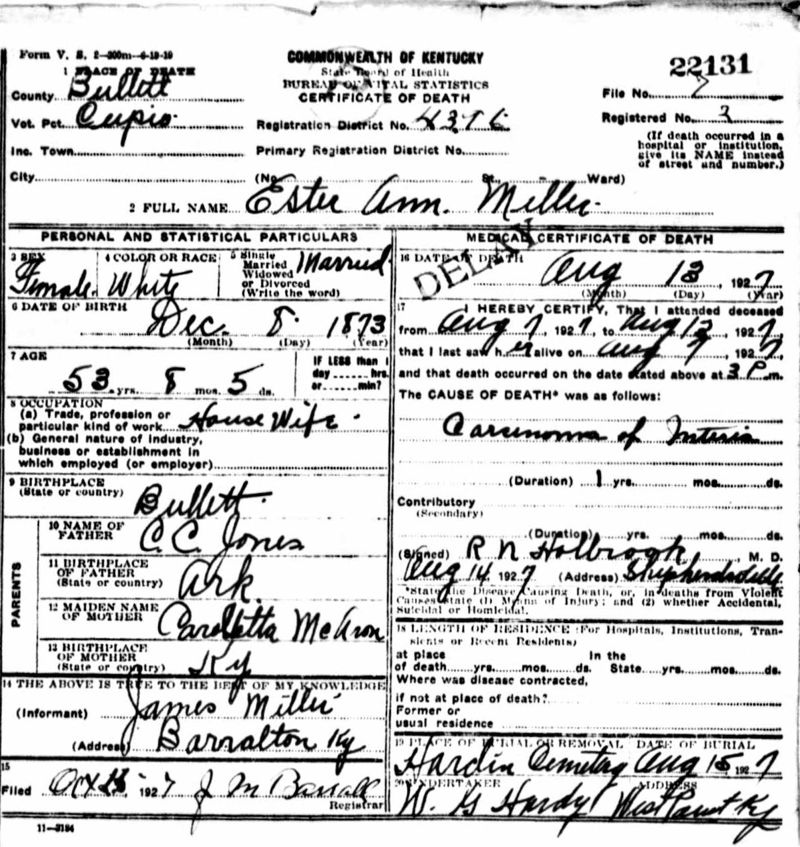 Form V. S. 2—300m—6-19-19
COMMONWEALTH OF KENTUCKY
State Board of Health
BUREAU OF VITAL STATISTICS
CERTIFICATE OF DEATH
22131
1 PLACE OF DEATH
County Bullett
Vot. Pct. Cupio
Inc. Town
City
Registration District No. 4376
Primary Registration District No.
(No. St. Ward)
File No.
Registered No. 3
(If death occurred in a
hospital or institution,
give its NAME instead
of street and number.)
2 FULL NAME Ester Ann. Miller
PERSONAL AND STATISTICAL PARTICULARS
3 SEX
Female
4 COLOR OR RACE
White
5 Single
Married
Widowed
or Divorced
(Write the word)
Married
6 DATE OF BIRTH
Dec. 8. 1873
(Month) (Day) (Year)
7 AGE
53 yrs. 8 mos. 5 ds.
IF LESS than 1
day hrs.
or min?
8 OCCUPATION
(a) Trade, profession or
particular kind of work House Wife.
(b) General nature of industry,
business or establishment in
which employed (or employer)
9 BIRTHPLACE
(State or country)
Bullett.
PARENTS
10 NAME OF
FATHER
C. C. Jones
11 BIRTHPLACE
OF FATHER
(State or country)
Ark.
12 MAIDEN NAME
OF MOTHER
13 BIRTHPLACE
OF MOTHER
(State or country)
Ky
14 THE ABOVE IS TRUE TO THE BEST OF MY KNOWLEDGE
(Informant) James Miller
(Address) Barralton Ky
15
Filed Oct 1927 J M Barrall
Registrar
11-3184
MEDICAL CERTIFICATE OF DEATH
DELAY
16 DATE OF DEATH
Aug 13, 1927
(Month) (Day) (Year)
17 I HEREBY CERTIFY, That I attended deceased
from Aug 7, 1927, to Aug 13, 1927,
that I last saw her alive on Aug 7, 1927
and that death occurred on the date stated above at 3 P. m.
The CAUSE OF DEATH* was as follows:
Carcinoma of
(Duration) 1 yrs. mos. ds.
Contributory
(Secondary)
(Duration) yrs. mos. ds.
(Signed) R N M. D.
Aug 14 1927 (Address)
*State the Disease Causing Death, or, in deaths from Violent
Causes state (1) Means of Injury; and (2) whether Accidental,
Suicidal or Homicidal.
18 LENGTH OF RESIDENCE (For Hospitals, Institutions, Tran-
sients or Recent Residents)
at place In the
of death yrs. mos. ds. State yrs. mos. ds.
Where was disease contracted,
if not at place of death?
Former or
usual residence
19 PLACE OF BURIAL OR REMOVAL DATE OF BURIAL
Hardin Cemetery Aug 15 1927
20 UNDERTAKER ADDRESS
W. G Hardy West Point Ky